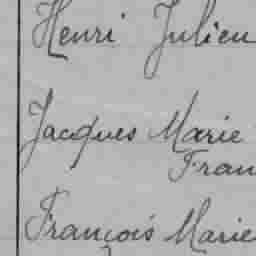 Henri Julien
Jacques Marie
Fran
François Marie